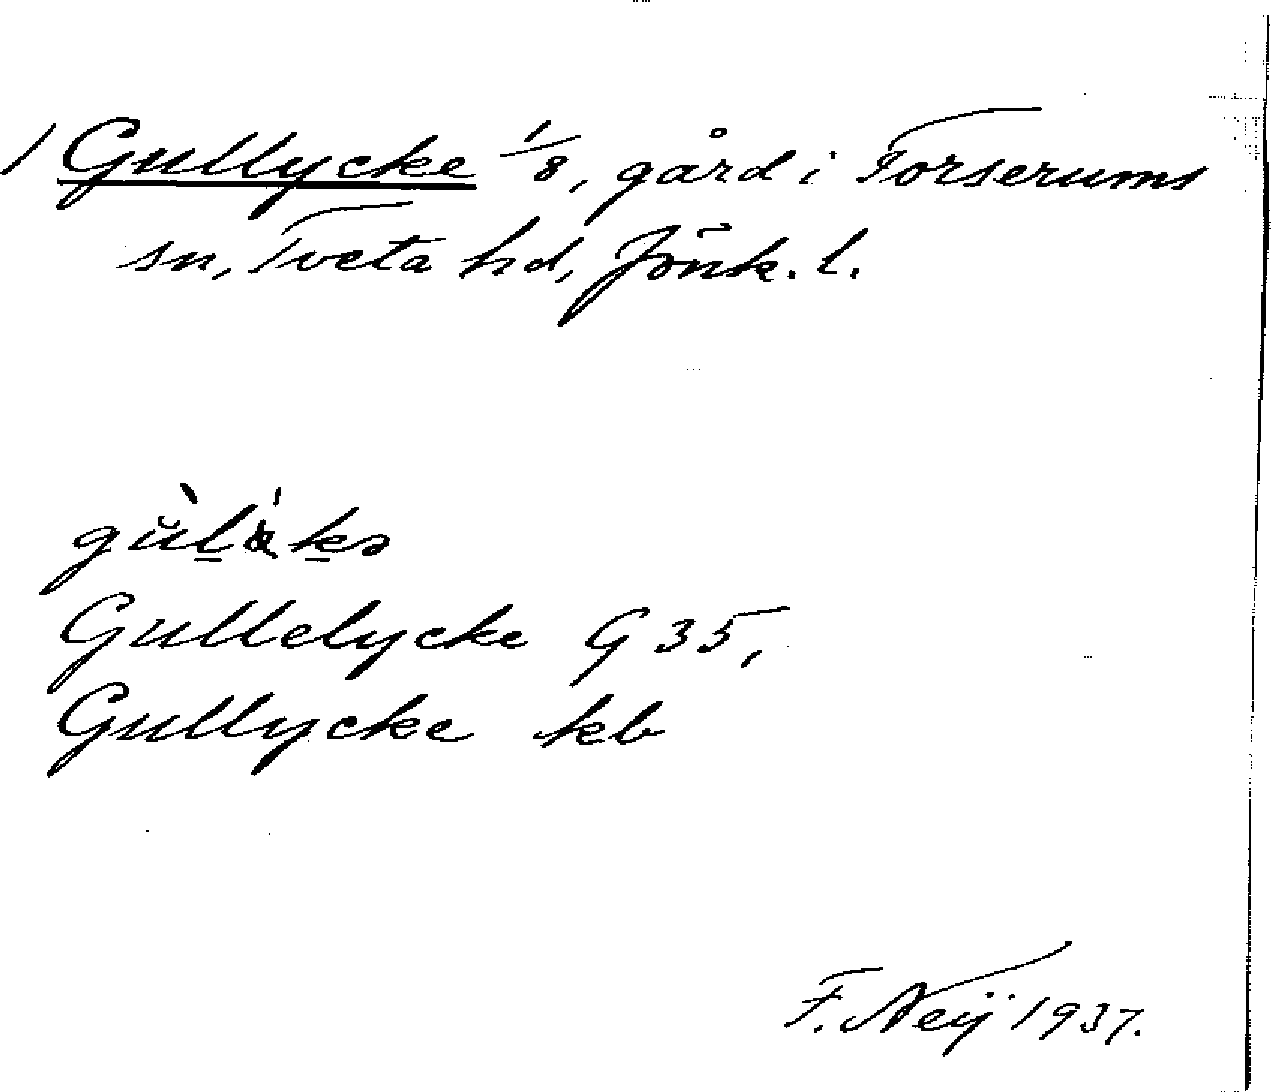 / Gullycke 1/8, gård i Forserums
sn, Tveta hd, Jönk. l.
Gullelycke G 35,
Gullycke kb
F. Neij 1937.